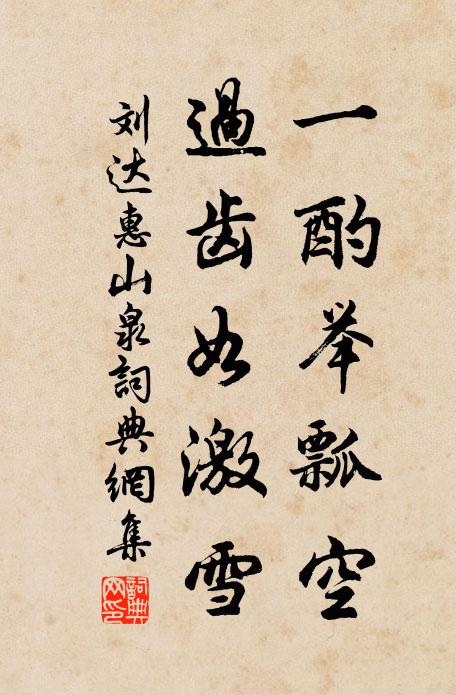 一酌举瓢空
過齿如激雪
刘达惠山泉詞典網集
詞典
网印